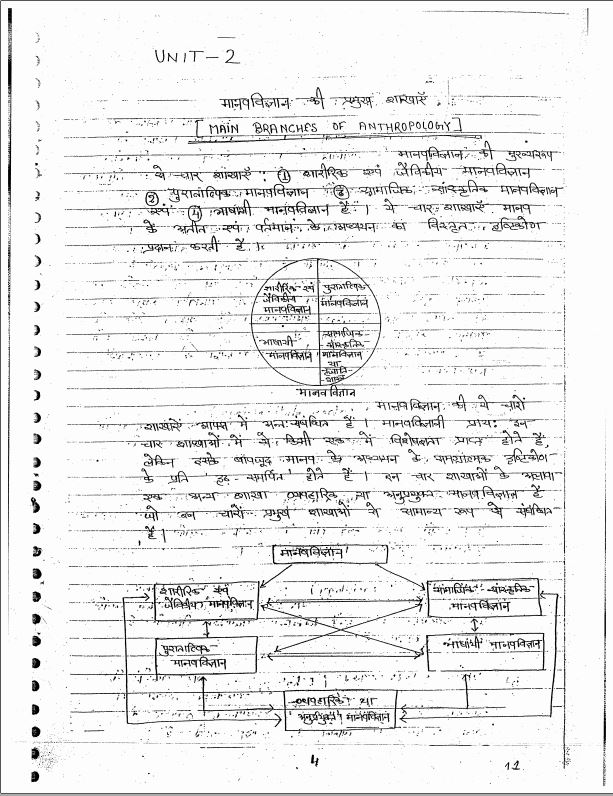 UNIT-2
मानवविज्ञान की प्रमुख शाखाएँ
[MAIN BRANCHES OF ANTHROPOLOGY]
मानवविज्ञान की मुख्यरूप
से चार शाखाएँ : (1) शारीरिक एवं जैविकीय मानवविज्ञान
(2) पुरातात्विक मानवविज्ञान (3) सामाजिक सांस्कृतिक मानवविज्ञान
एवं (4) भाषायी मानवविज्ञान हैं । ये चार शाखाएँ मानव
के अतीत एवं वर्तमान के अध्ययन का विस्तृत दृष्टिकोण
प्रदान करती हैं ।
शारीरिक एवं
जैविकीय
मानवविज्ञान
पुरातात्विक
मानवविज्ञान
भाषायी
मानवविज्ञान
सामाजिक-
सांस्कृतिक
मानवविज्ञान
या
मानवविज्ञान
मानवविज्ञान की ये चारों
शाखाएँ आपस में अन्तःसंबंधित हैं । मानवविज्ञानी प्रायः इन
चार शाखाओं में से किसी एक में विशेषज्ञता प्राप्त होते हैं,
लेकिन इसके बावजूद मानव के अध्ययन के समग्रात्मक दृष्टिकोण
के प्रति 'दृढ़ समर्पित' होते हैं । इन चार शाखाओं के अलावा
एक अन्य शाखा व्यवहारिक या अनुप्रयुक्त मानवविज्ञान है
जो इन चारों प्रमुख शाखाओं से सामान्य रूप से संबंधित
है ।
मानवविज्ञान
शारीरिक एवं
जैविकीय मानवविज्ञान
सामाजिक-सांस्कृतिक
मानवविज्ञान
पुरातात्विक
मानवविज्ञान
भाषायी मानवविज्ञान
व्यवहारिक या
अनुप्रयुक्त मानवविज्ञान
4
11